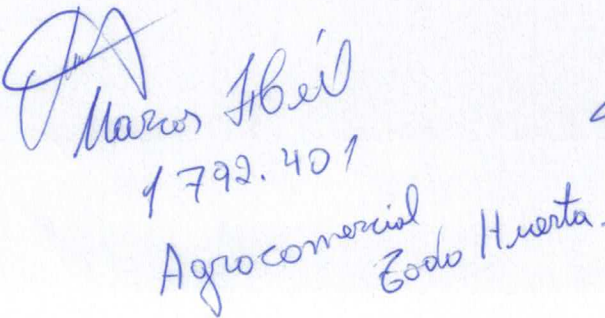 Marcos Abeil
1792.401
Agrocomercial
Todo Huerta.